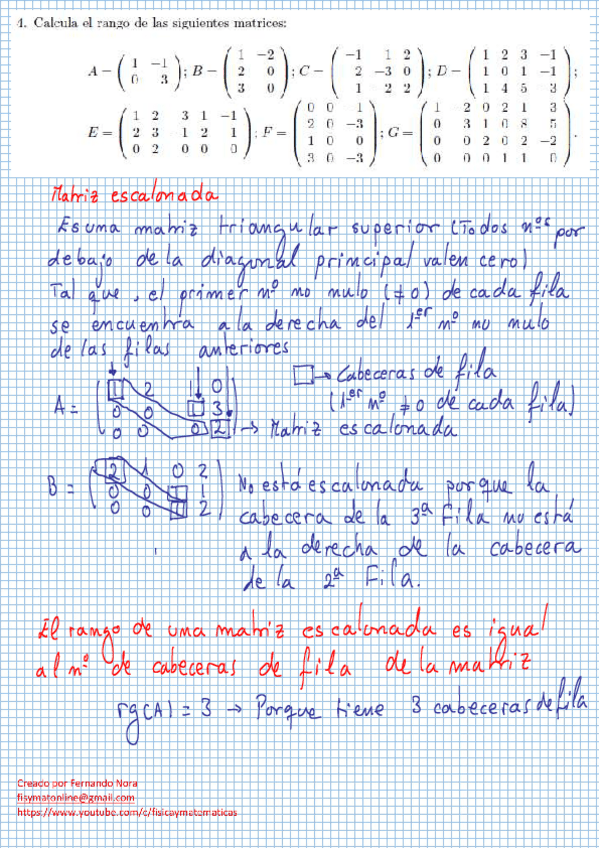 4. Calcula el rango de las siguientes matrices:
A = ( 1 −1 ; 0 3 ); B = ( 1 −2 ; 2 0 ; 3 0 ); C = ( −1 1 2 ; 2 −3 0 ; 1 2 2 ); D = ( 1 2 3 −1 ; 1 0 1 −1 ; 1 4 5 3 );
E = ( 1 2 3 1 −1 ; 2 3 1 2 1 ; 0 2 0 0 0 ); F = ( 0 0 1 ; 2 0 −3 ; 1 0 0 ; 3 0 −3 ); G = ( 1 2 0 2 1 3 ; 0 3 1 0 8 5 ; 0 0 2 0 2 −2 ; 0 0 0 1 1 0 ).
Matriz escalonada
Es una matriz triangular superior (Todos nºs por
debajo de la diagonal principal valen cero)
Tal que, el primer nº no nulo (≠0) de cada fila
se encuentra a la derecha del 1er nº no nulo
de las filas anteriores
A = ( 1 2 1 0 ; 0 0 1 3 ; 0 0 0 2 ) → Matriz escalonada
□ → Cabeceras de fila
(1er nº ≠0 de cada fila)
B = ( 2 1 0 2 ; 0 0 1 1 ; 0 0 1 2 ) No está escalonada porque la
cabecera de la 3ª Fila no está
a la derecha de la cabecera
de la 2ª Fila.
El rango de una matriz escalonada es igual
al nº de cabeceras de fila de la matriz
rg(A) = 3 → Porque tiene 3 cabeceras de fila
Creado por Fernando Nora
fisymatonline@gmail.com
https://www.youtube.com/c/fisicaymatematicas